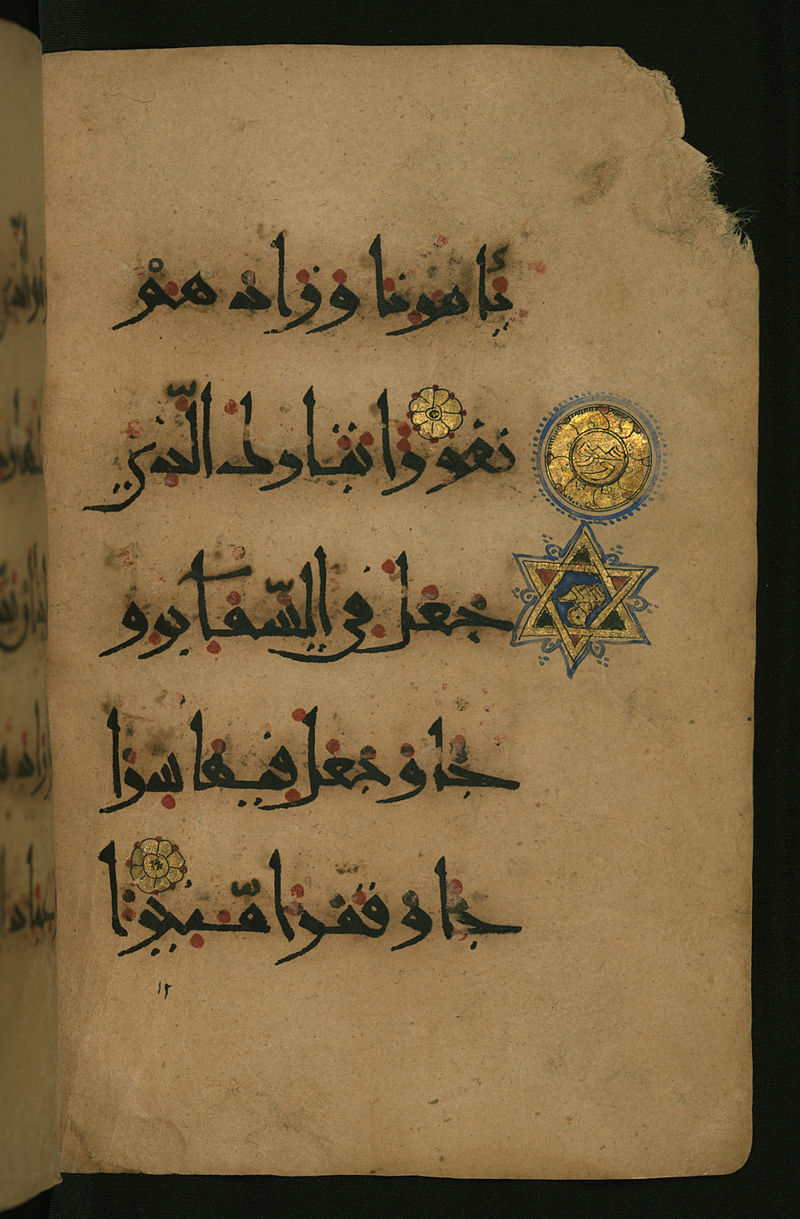 يأمرنا وزادهم
نفورا تبارك الذي
جعل في السماء برو
جا وجعل فيها سرا
جا وقمرا منيرا